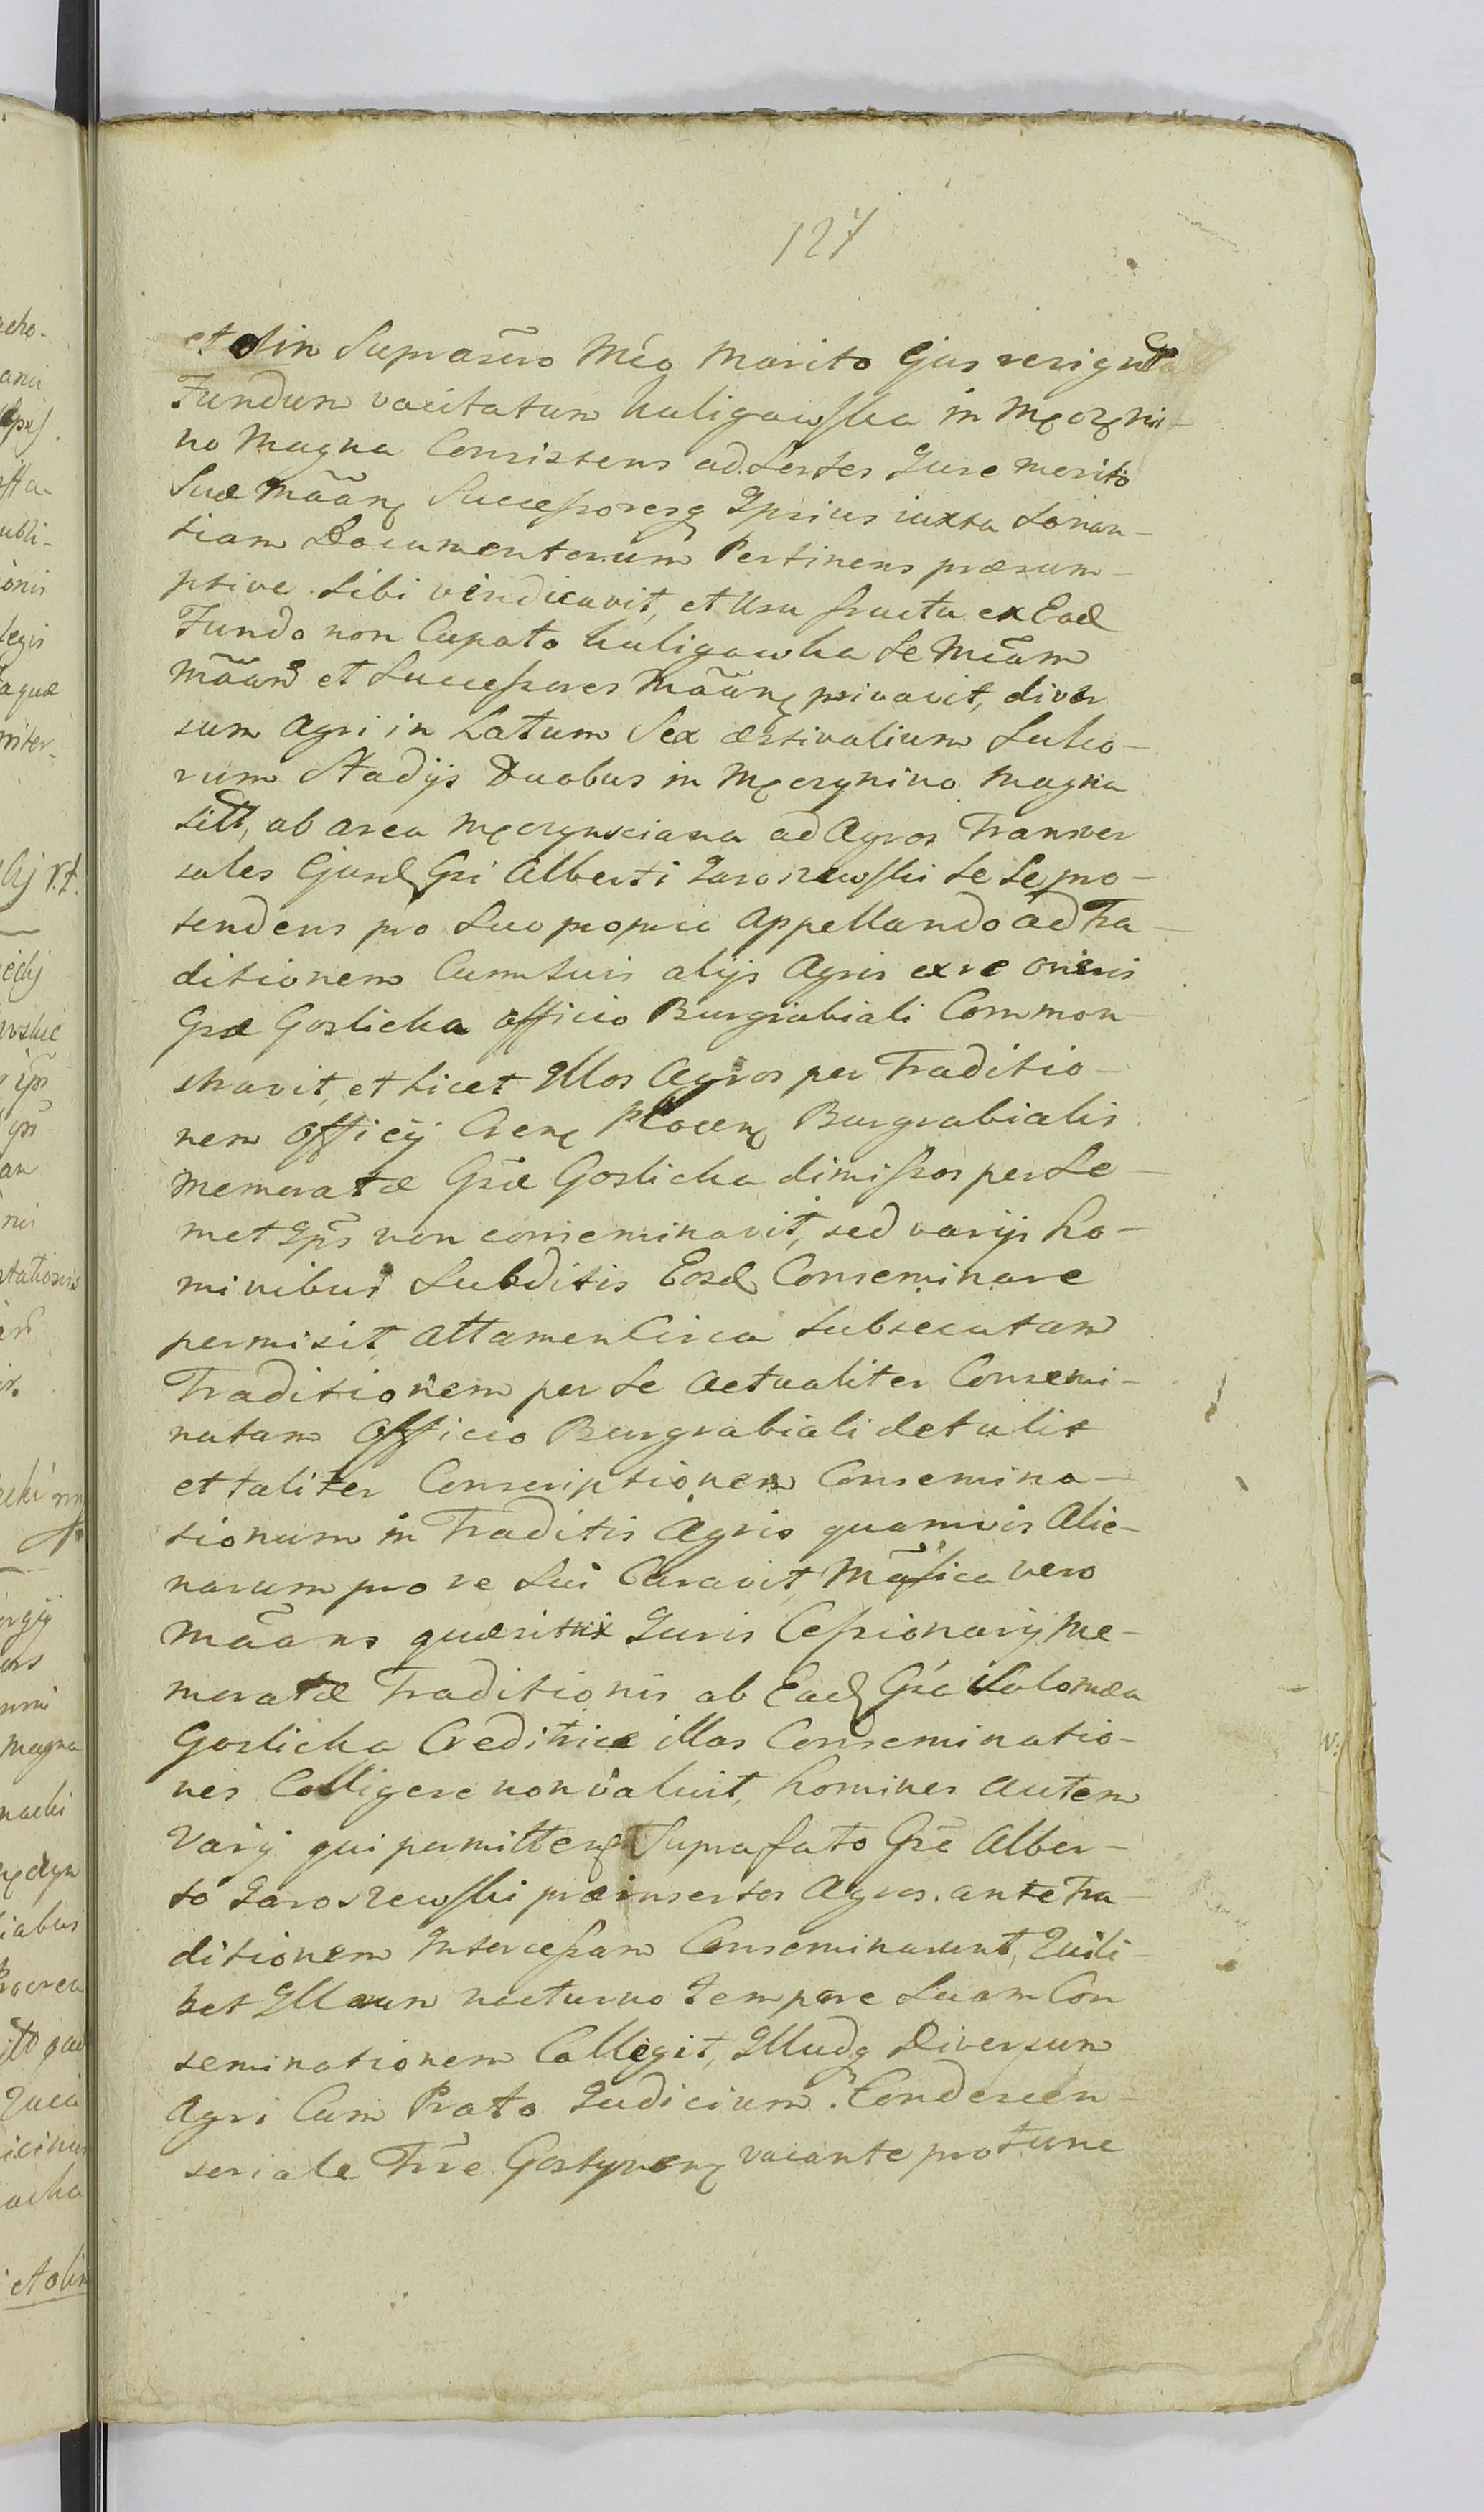 127
et olim Suprascro Mco Marito Ejus resignata
Fundum vocitatum Kuligowska in Męczyni-
no Magna Consistens ad Sortes Jure merito
Suæ Mãanę Successoresq Ipsius iuxta Sonan-
tiam Documentorum Pertinens præsum-
ptive Sibi vindicavit, et Usu fructu ex Eod
Fundo non Cupato Kuligowka Se Mcam
Mãand et Successores Mãanę privavit, diver
sum Agri in Latum Sex æstivalium Sulco-
rum Stadijs Duobus in Męczynino Magna
sitt, ab area Męczynsciana ad Agros Transver
sales Ejusd Gsi Alberti Jaroszewski se se pro-
tendens pro Suo proprio Appellando ad Tra-
ditionem Cum Suis alijs Agris ex re oneris
Gsæ Goslicka officio Burgrabiali Common-
stravit, et licet Illos Agros per Traditio-
nem Officij Crenę Plocenę Burgrabialis
Memoratæ Gsæ Goslicka dimissos per Se-
met Ips non conseminavit, sed varijs ho-
minibus Subditis Eosd Conseminare
permisit, attamen Circa Subsecutam
Traditionem per Se Actualiter Consemi-
natam Officio Burgrabiali detulit
et taliter Conscriptionem Consemina-
tionum in Traditis Agris quamvis Alie-
narum pro re Sui Curavit, Mãfica vero
Mãans quæsitrix Juris Cessionarij Me-
moratæ Traditionis ab Ead Gsa Salomea
Goslicka Creditrice illas Conseminatio-
nes Colligere non valuit, homines autem
Varij qui permitten Suprafato Gse Alber-
to Jaroszewski præinsertos Agros ante Tra-
ditionem Intercessam Conseminarunt, Quili-
bet Illorum nocturno tempore Suam Con
seminationem Collegit, Illudq Diversum
Agri Cum Prato Judicium Condescen-
seriale Trre Gostynenę vacante pro tunc